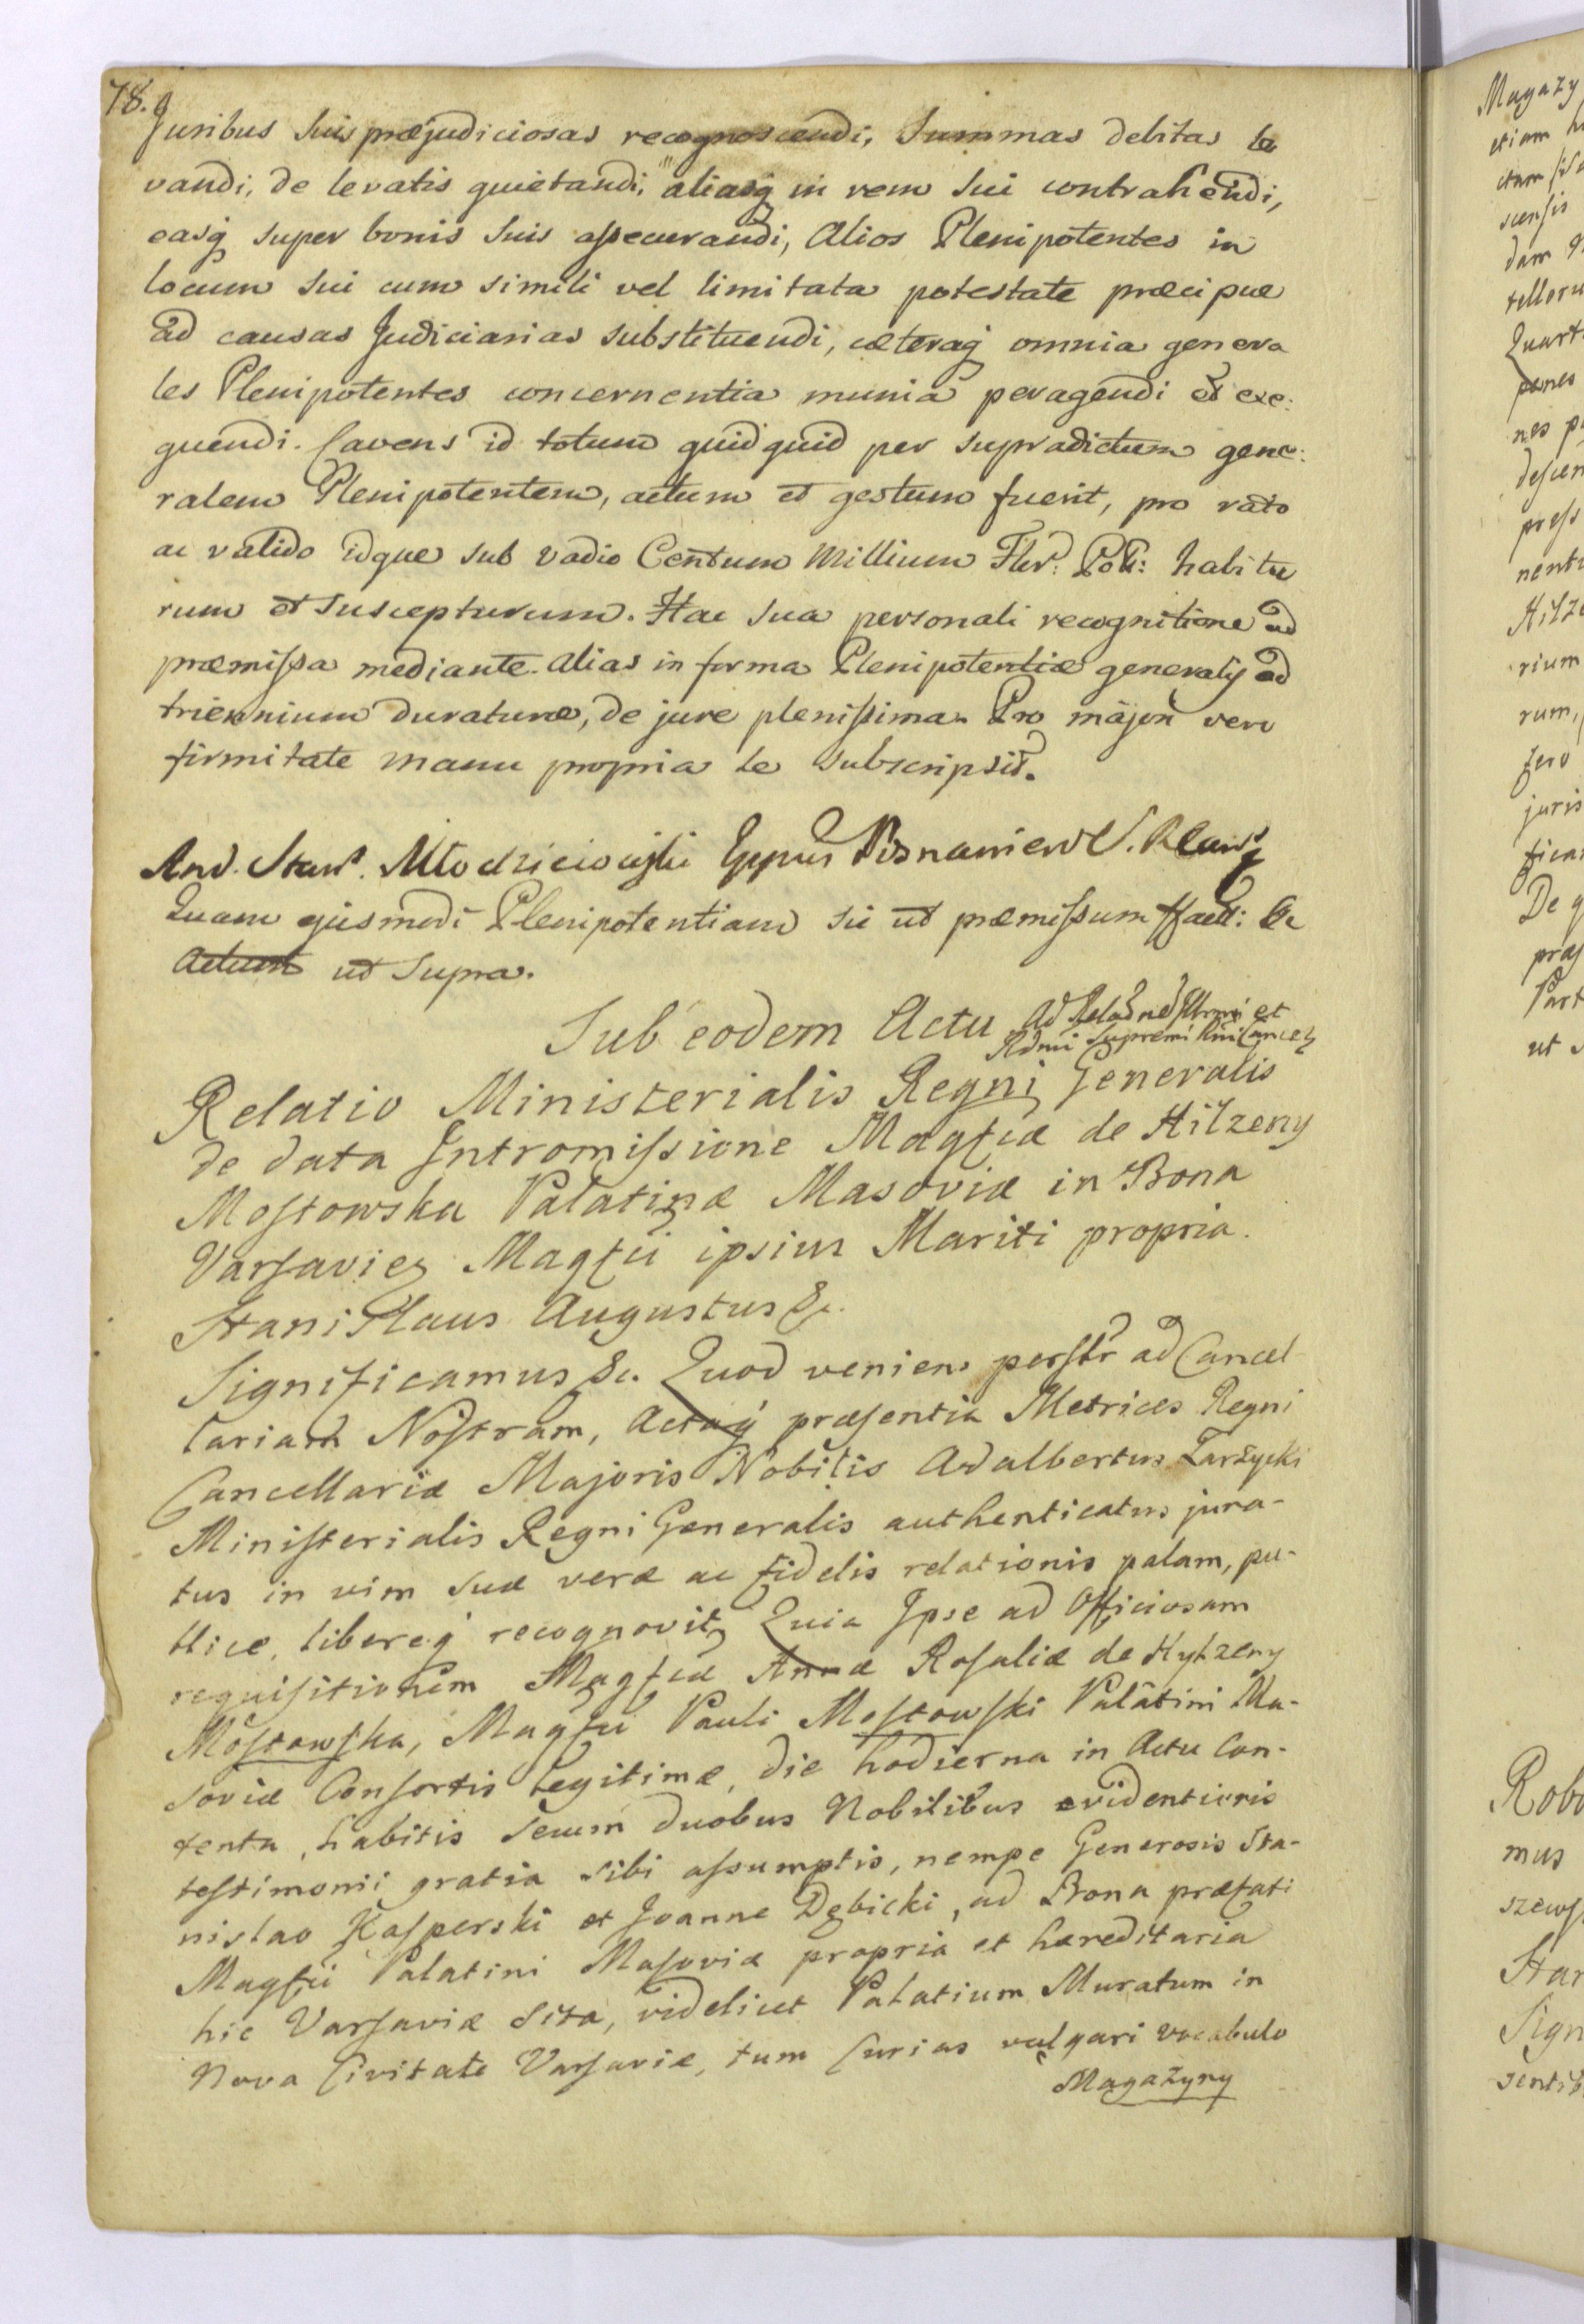 78.
Juribus suis præjudiciosas recognoscendi, Summas debitas le
vandi, de levatis quietandi, aliasq in rem sui contrahendi,
easq super bonis suis assecurandi, Alios Plenipotentes in
locum sui cum simili vel limitata potestate præcipue
ad causas Judiciarias substituendi, cæteraq omnia genera
les Plenipotentes concernentia munia peragendi et exe:
quendi. Cavens id totum quidquid per supradictum gene:
ralem Plenipotentem, actum et gestum fuerit, pro rato
ac valido idque sub vadio Centum Millium Flor: Poll: habitu
rum et suscepturum. Hac sua personali recognitione ad
præmissa mediante. alias in forma Plenipotentiæ generalis ad
triennium duraturæ, de jure plenissima. Pro majori vero
firmitate manu propria se subscripsit.
And. Stan. Młodzieiowski Eppus Posnanien
Quam ejusmodi Plenipotentiam sic ut præmissum ffact: &c
Actum ut supra.
Sub eodem Actu Ad et
Rdmi Supremi Rni Cancel
Relatio Ministerialis Regni Generalis
de data Intromissione Magfcæ de Hilzeny
Mostowska Palatinæ Masoviæ in Bona
Varsavien Magfci ipsius Mariti propria.
Stanislaus Augustus &c.
Significamus &c. Quod veniens persltr ad Cancel
lariam Nostram, Actaq præsentia Metrices Regni
Cancellariæ Majoris Nobilis Adalbertus Zarzycki
Ministerialis Regni Generalis authenticatus jura-
tus in vim suæ veræ ac fidelis relationis palam, pu-
blice, libereq recognovit, Quia Ipse ad Officiosam
requisitionem Magfcæ Annæ Rosaliæ de Hylzeny
Mostowska, Magfci Pauli Mostowski Palatini Ma-
soviæ Consortis legitimæ, die hodierna in Actu Con-
tenta, habitis secum duobus Nobilibus evidentioris
testimonii gratia sibi assumptis, nempe Generosis Sta-
nislao Kasperski et Joanne Dębicki, ad Bona præfati
Magfci Palatini Masoviæ propria et hæreditaria
hic Varsaviæ sita, videlicet Palatium Muratum in
Nova Civitate Varsaviæ, tum Curias vulgari vocabulo
Magazyny